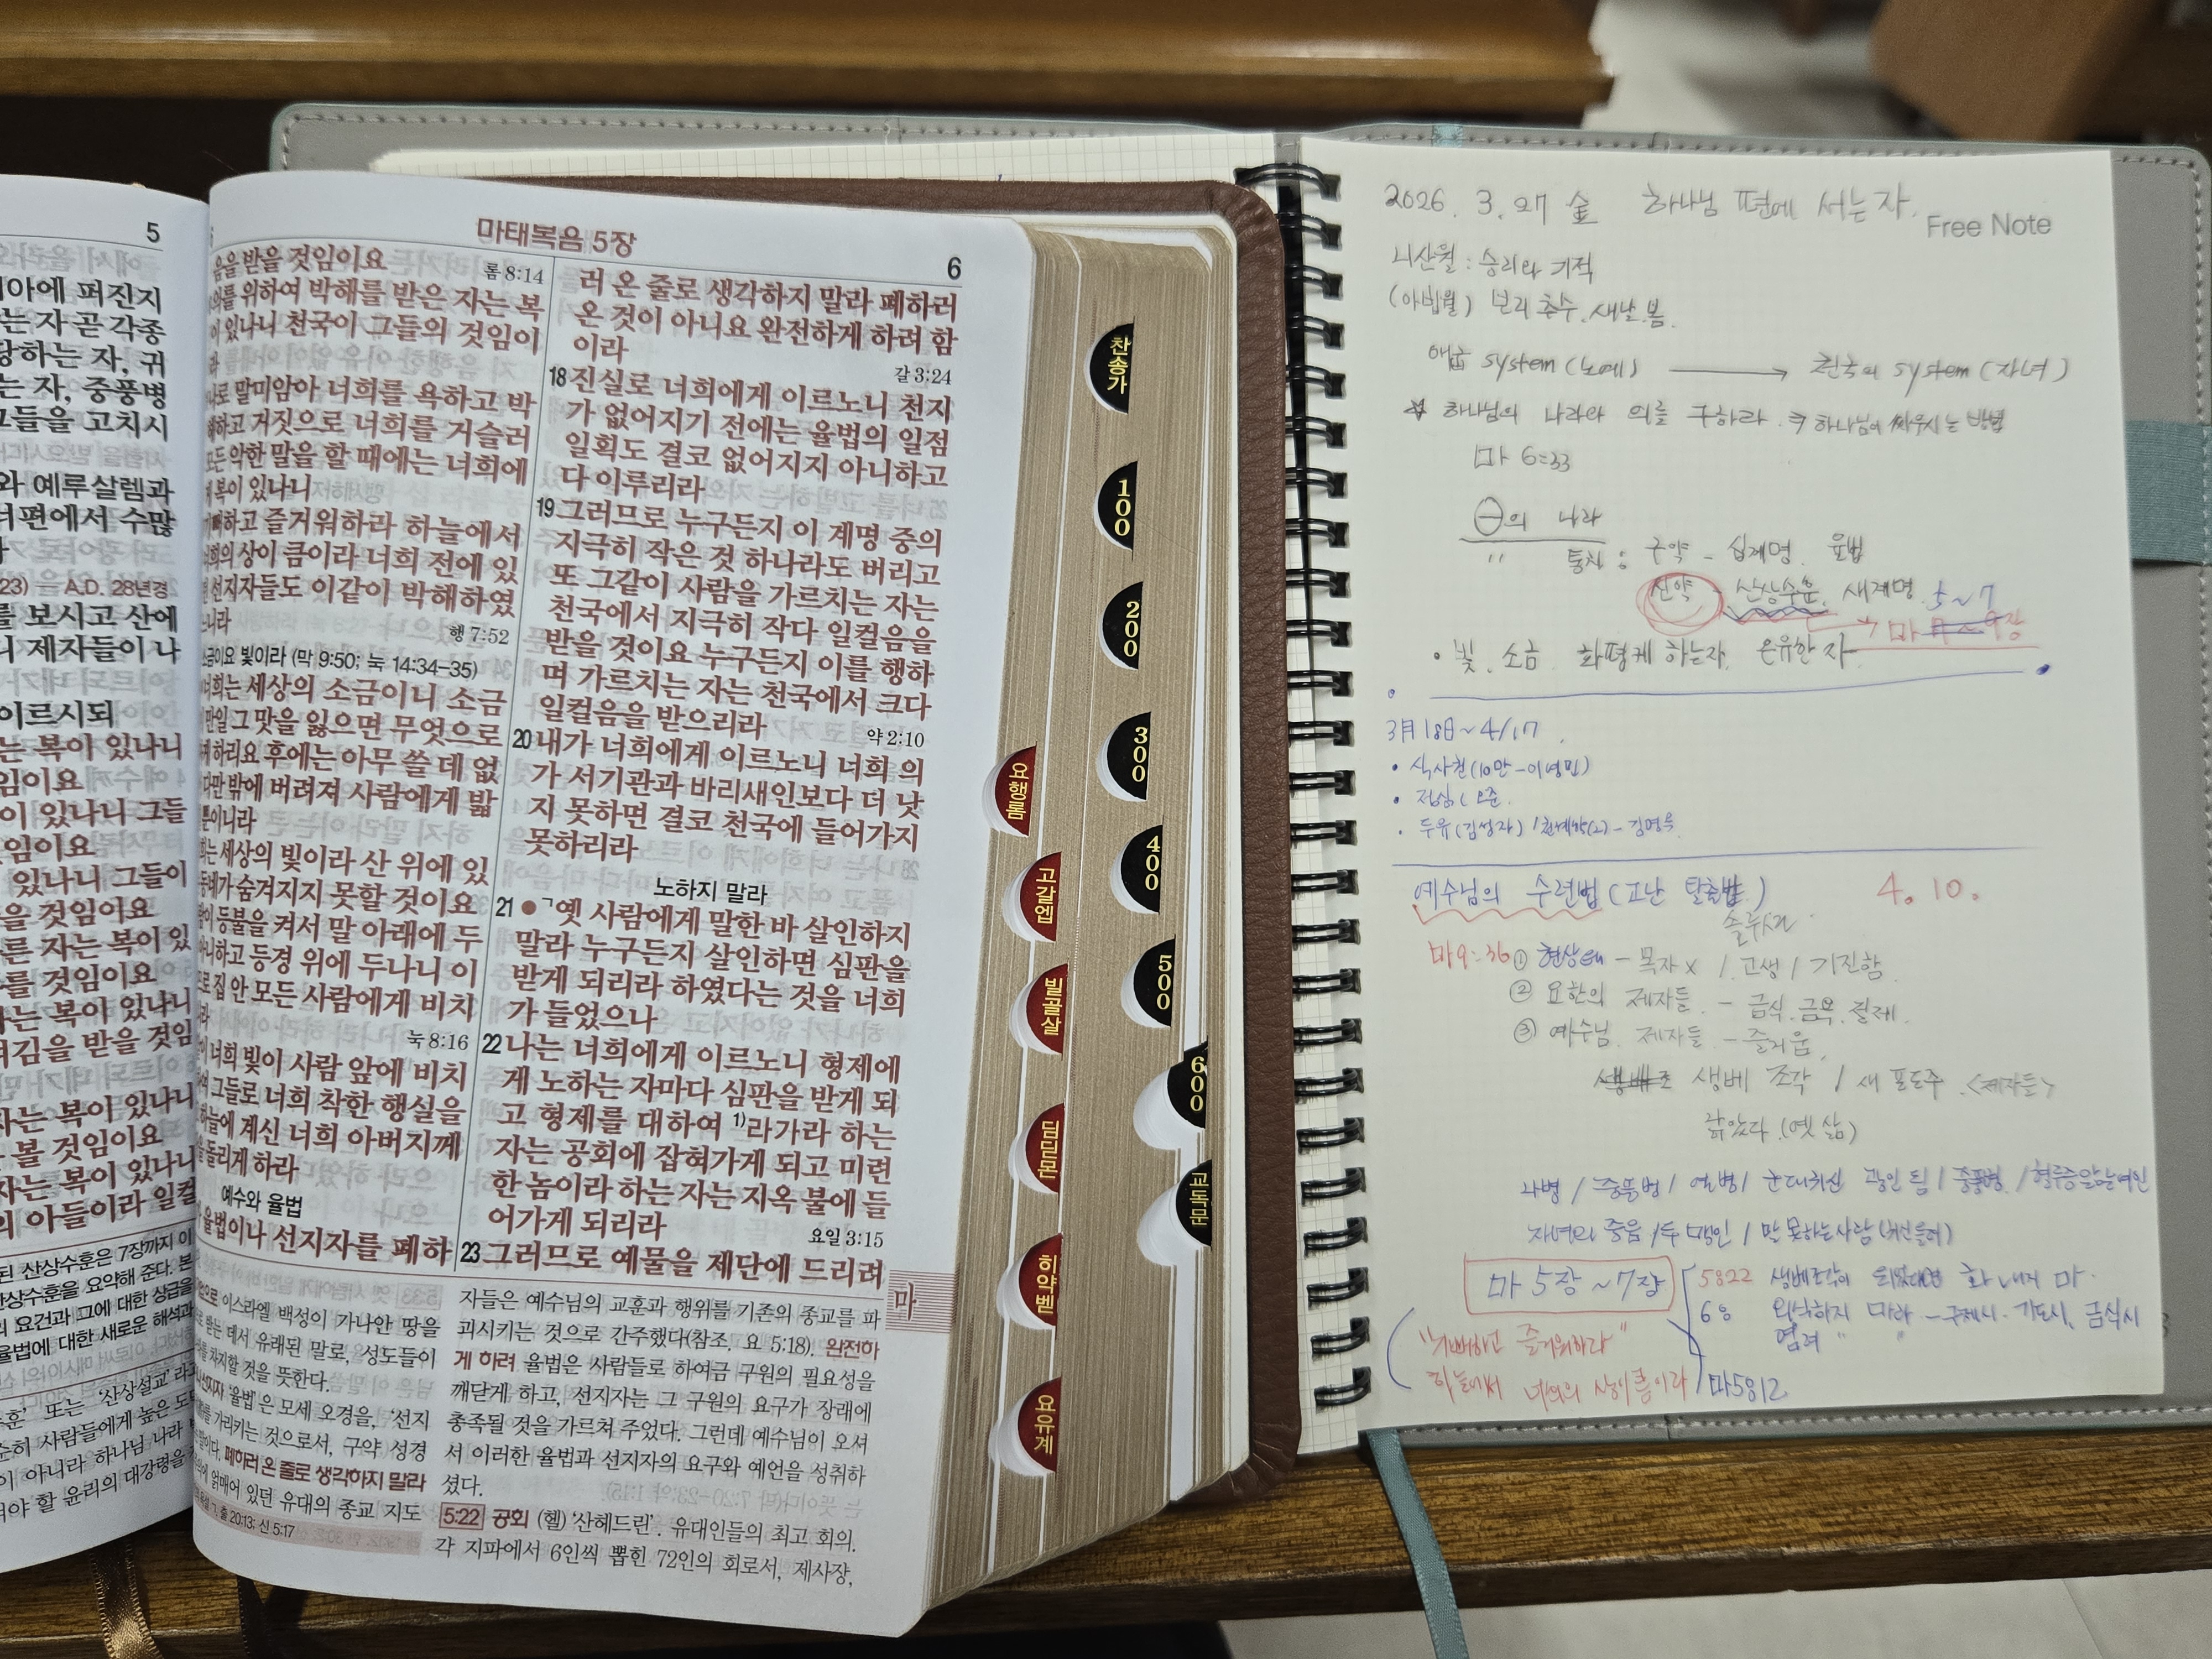 5
아에 퍼진지
는 자 곧 각종
당하는 자, 귀
는 자, 중풍병
그들을 고치시
와 예루살렘과
편에서 수많
23) A.D. 28년경
를 보시고 산에
니 제자들이 나
이르시되
는 복이 있나니
임이요
이 있나니 그들
임이요
있나니 그들이
을 것임이요
른 자는 복이 있
를 것임이요
는 복이 있나니
겨김을 받을 것임
자는 복이 있나니
볼 것임이요
자는 복이 있나니
의 아들이라 일컬
된 산상수훈은 7장까지 이
산상수훈을 요약해 준다. 본
의 요건과 그에 대한 상급을
율법에 대한 새로운 해석과
훈' 또는 '산상설교'라고
순히 사람들에게 높은 도
이 아니라 하나님 나라
여야 할 윤리의 대강령을
마태복음 5장
6
음을 받을 것임이요
롬 8:14
의를 위하여 박해를 받은 자는 복
이 있나니 천국이 그들의 것임이
라
나로 말미암아 너희를 욕하고 박
해하고 거짓으로 너희를 거슬러
모든 악한 말을 할 때에는 너희에
게 복이 있나니
기뻐하고 즐거워하라 하늘에서
너희의 상이 큼이라 너희 전에 있
던 선지자들도 이같이 박해하였
느니라
행 7:52
소금이요 빛이라 (막 9:50; 눅 14:34-35)
너희는 세상의 소금이니 소금
만일 그 맛을 잃으면 무엇으로
게 하리요 후에는 아무 쓸 데 없
다만 밖에 버려져 사람에게 밟
뿐이니라
희는 세상의 빛이라 산 위에 있
동네가 숨겨지지 못할 것이요
람이 등불을 켜서 말 아래에 두
아니하고 등경 위에 두나니 이
므로 집 안 모든 사람에게 비치
라
눅 8:16
이 너희 빛이 사람 앞에 비치
하여 그들로 너희 착한 행실을
하늘에 계신 너희 아버지께
을 돌리게 하라
예수와 율법
율법이나 선지자를 폐하
러 온 줄로 생각하지 말라 폐하러
온 것이 아니요 완전하게 하려 함
이라
갈 3:24
18 진실로 너희에게 이르노니 천지
가 없어지기 전에는 율법의 일점
일획도 결코 없어지지 아니하고
다 이루리라
19 그러므로 누구든지 이 계명 중의
지극히 작은 것 하나라도 버리고
또 그같이 사람을 가르치는 자는
천국에서 지극히 작다 일컬음을
받을 것이요 누구든지 이를 행하
며 가르치는 자는 천국에서 크다
일컬음을 받으리라
약 2:10
20 내가 너희에게 이르노니 너희 의
가 서기관과 바리새인보다 더 낫
지 못하면 결코 천국에 들어가지
못하리라
노하지 말라
21 ●ㄱ옛 사람에게 말한 바 살인하지
말라 누구든지 살인하면 심판을
받게 되리라 하였다는 것을 너희
가 들었으나
22 나는 너희에게 이르노니 형제에
게 노하는 자마다 심판을 받게 되
고 형제를 대하여 1)라가라 하는
자는 공회에 잡혀가게 되고 미련
한 놈이라 하는 자는 지옥 불에 들
어가게 되리라
요일 3:15
23 그러므로 예물을 제단에 드리려
마
으로 이스라엘 백성이 가나안 땅을
받는 데서 유래된 말로, 성도들이
차지할 것을 뜻한다.
선지자 '율법'은 모세 오경을, '선지
를 가리키는 것으로서, 구약 성경
말이다. 폐하러 온 줄로 생각하지 말라
에 얽매어 있던 유대의 종교 지도
출 20:13; 신 5:17
자들은 예수님의 교훈과 행위를 기존의 종교를 파
괴시키는 것으로 간주했다(참조, 요 5:18). 완전하
게 하려 율법은 사람들로 하여금 구원의 필요성을
깨닫게 하고, 선지자는 그 구원의 요구가 장래에
충족될 것을 가르쳐 주었다. 그런데 예수님이 오셔
서 이러한 율법과 선지자의 요구와 예언을 성취하
셨다.
5:22 공회 (헬) '산헤드린'. 유대인들의 최고 회의.
각 지파에서 6인씩 뽑힌 72인의 회로서, 제사장,
요행롬
고갈엡
빌골살
딤딛몬
히약벧
요유계
찬송가
100
200
300
400
500
600
교독문
2026. 3. 27 金 하나님 편에 서는 자.
Free Note
니산월 : 승리와 기적
(아빕월) 보리 추수. 새날. 봄.
애굽 system (노예) → 천국의 system (자녀)
하나님의 나라와 의를 구하라. 하나님이 싸우시는 방법
마 6:33
의 나라
" 통치 : 구약 - 십계명. 율법
신약 - 산상수훈. 새계명. 5~7
마 장
• 빛. 소금. 화평케 하는자. 온유한 자
3月 18日 ~ 4/17
• 식사헌(10만 - 이영민)
• 점심(
• 두유(김성자) / - 김영옥
예수님의 수련법 (고난 탈출법) 4. 10.
솔루션
마 9:36 ① 현상 - 목자 x / 고생 / 기진함
② 요한의 제자들. - 금식. 금욕. 절제.
③ 예수님. 제자들. - 즐거움.
생베 조각 / 새 포도주 <제자들>
낡았다 (옛 삶)
나병 / 중풍병 / 열병 / 군대귀신 광인 됨 / 중풍병 / 혈루증앓는여인
자녀의 죽음 / 두 맹인 / 말 못하는 사람 (귀신들려)
마 5장 ~ 7장
5:22 생베조각이 화 내지 마.
6: 외식하지 마라 - 구제시. 기도시. 금식시
염려 " "
"기뻐하고 즐거워하라"
하늘에서 너희의 상이 큼이라 / 마5:12